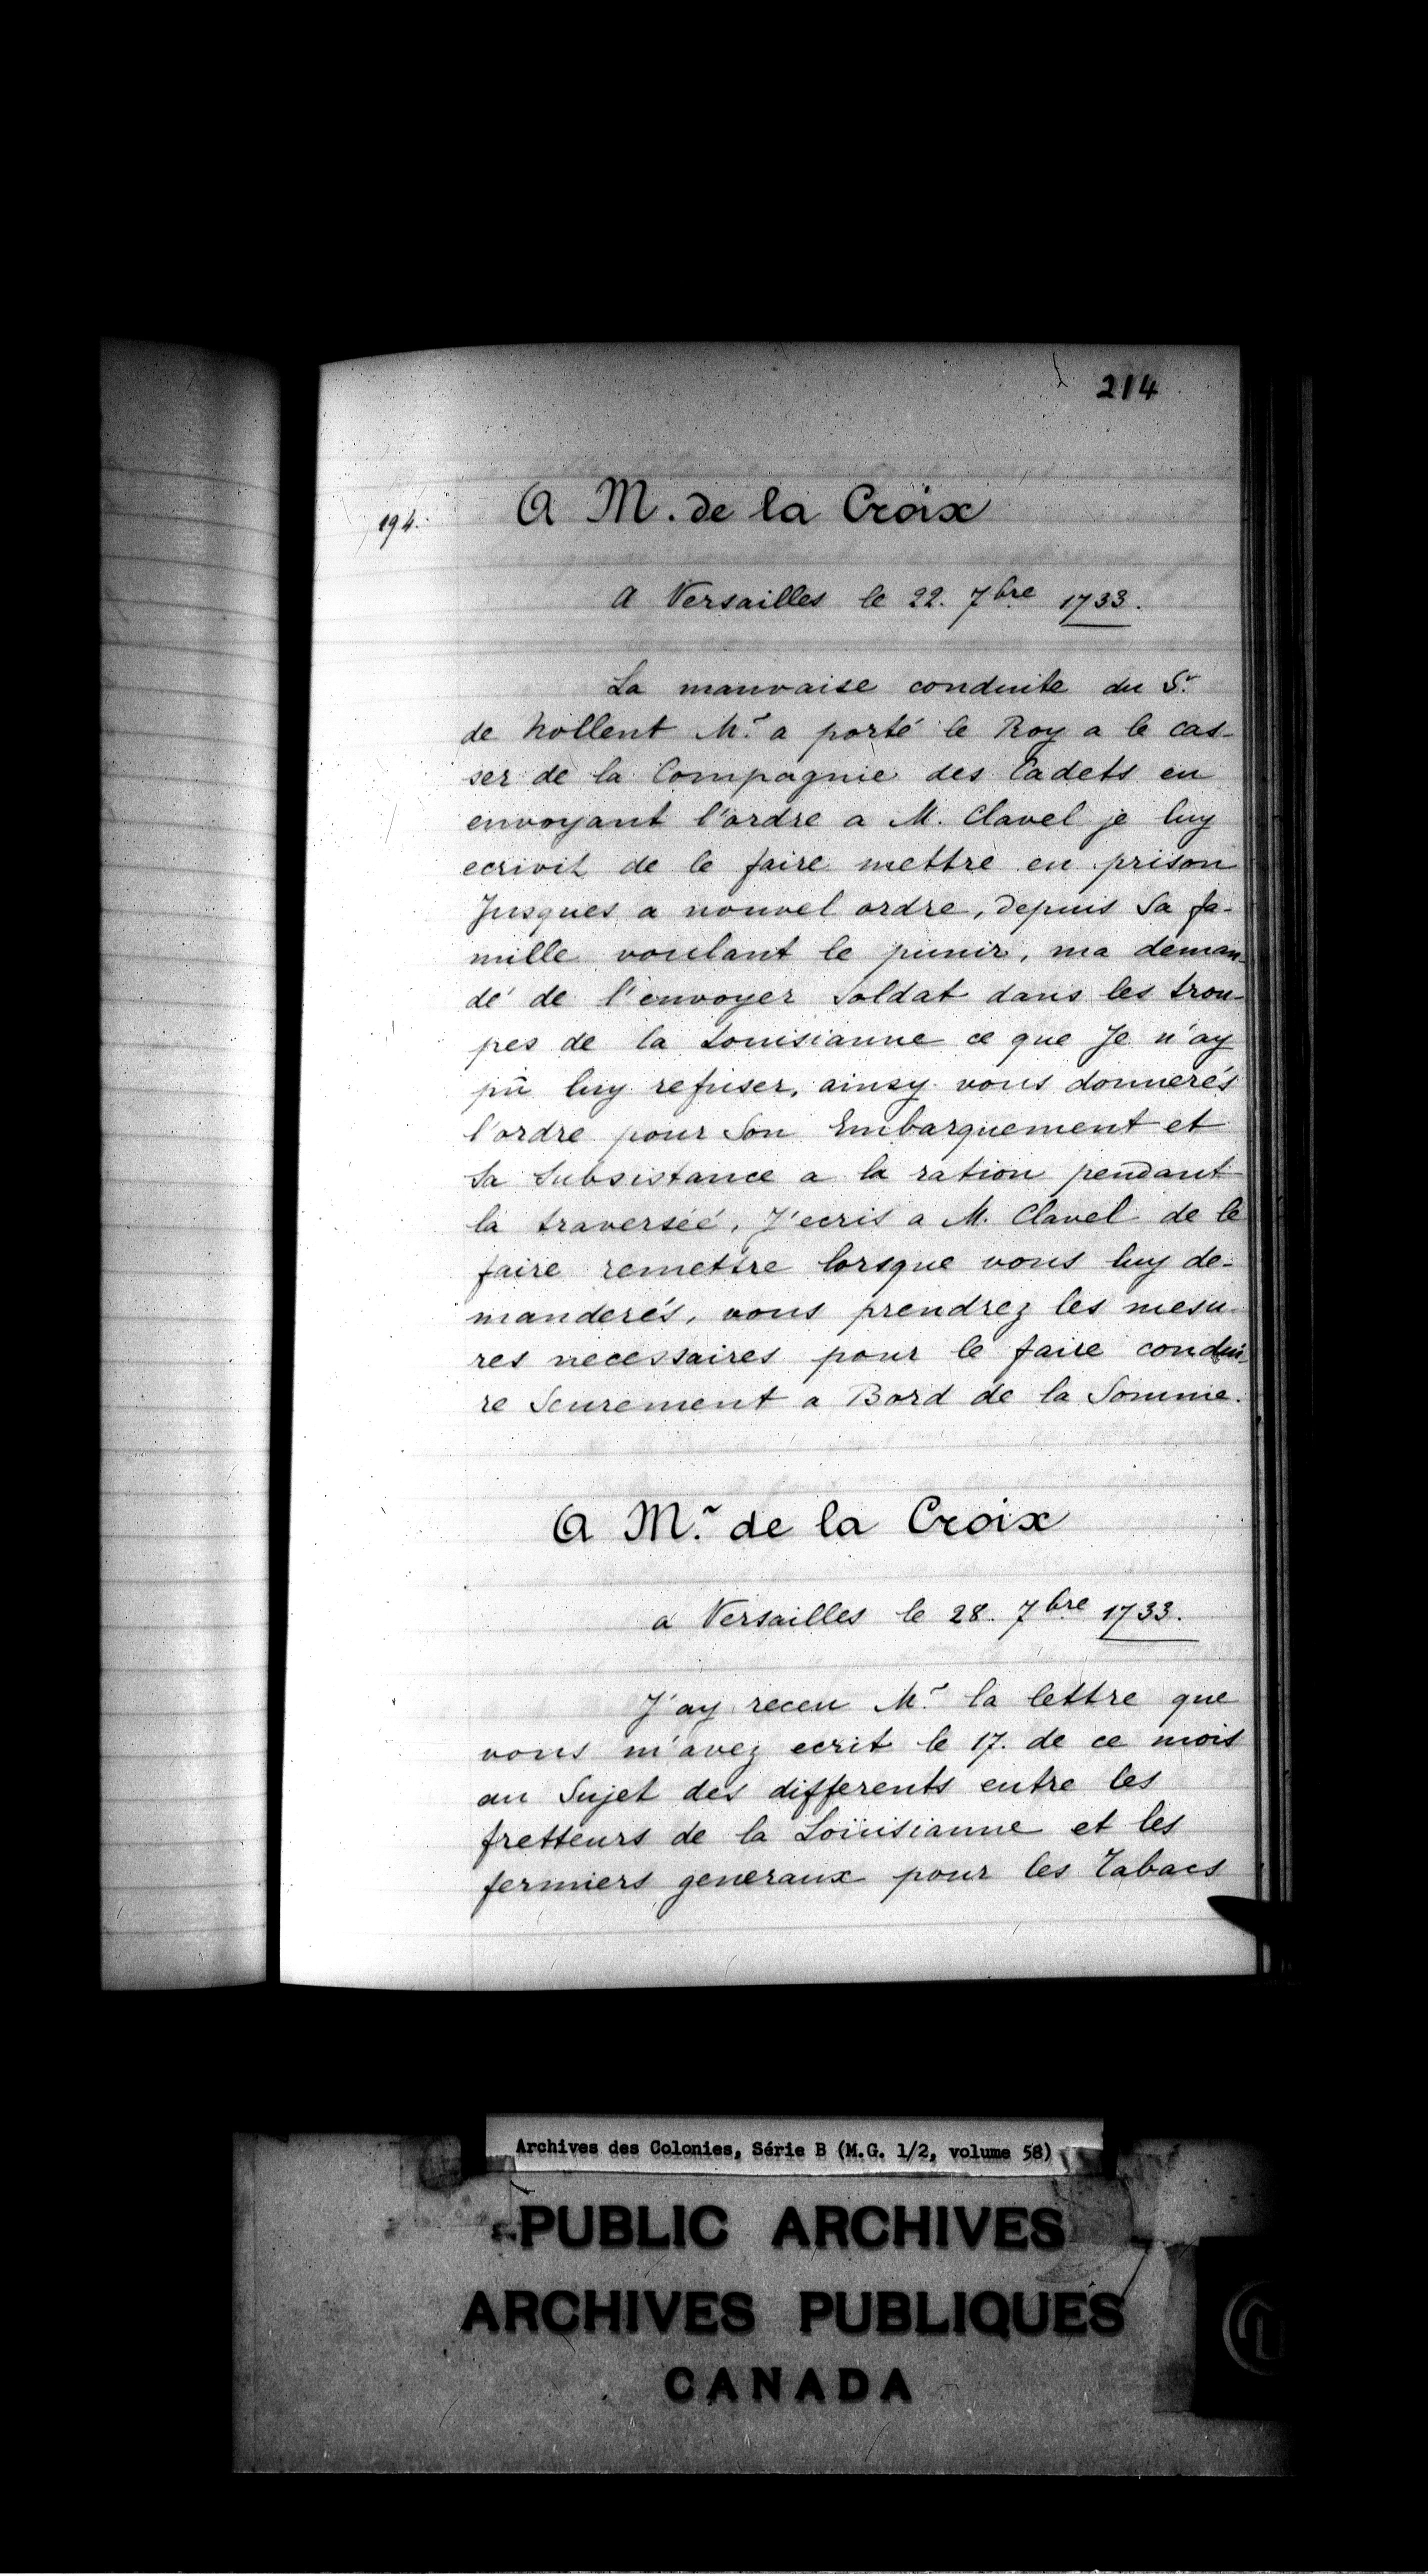 214
194.
A M. de la Croix
A Versailles le 22. 7bre 1733.
La mauvaise conduite du Sr
de hollent Mr a porté le Roy a le cas-
ser de la Compagnie des Cadets en
envoyant l'ordre a M. Clavel je luy
ecrivit de le faire mettre en prison
Jusques a nouvel ordre, depuis Sa fa-
mille voulant le punir, ma deman-
dé de l'envoyer Soldat dans les trou-
pes de la Louisianne ce que Je n'ay
pû luy refuser, ainsy vous donnerés
l'ordre pour Son Embarquement et
Sa Subsistance a la ration pendant
la traverséé, J'ecris a M. Clavel de le
faire remettre lorsque vous luy de-
manderés, vous prendrez les mesu-
res necessaires pour le faire condui-
re Seurement a Bord de la Somme.
A Mr de la Croix
a Versailles le 28. 7bre 1733.
J'ay receu Mr la lettre que
vous m'avez ecrit le 17. de ce mois
au Sujet des differents entre les
fretteurs de la Loüisianne et les
fermiers generaux pour les Tabacs
Archives des Colonies, Série B (M.G. 1/2, volume 58)
PUBLIC ARCHIVES
ARCHIVES PUBLIQUES
CANADA